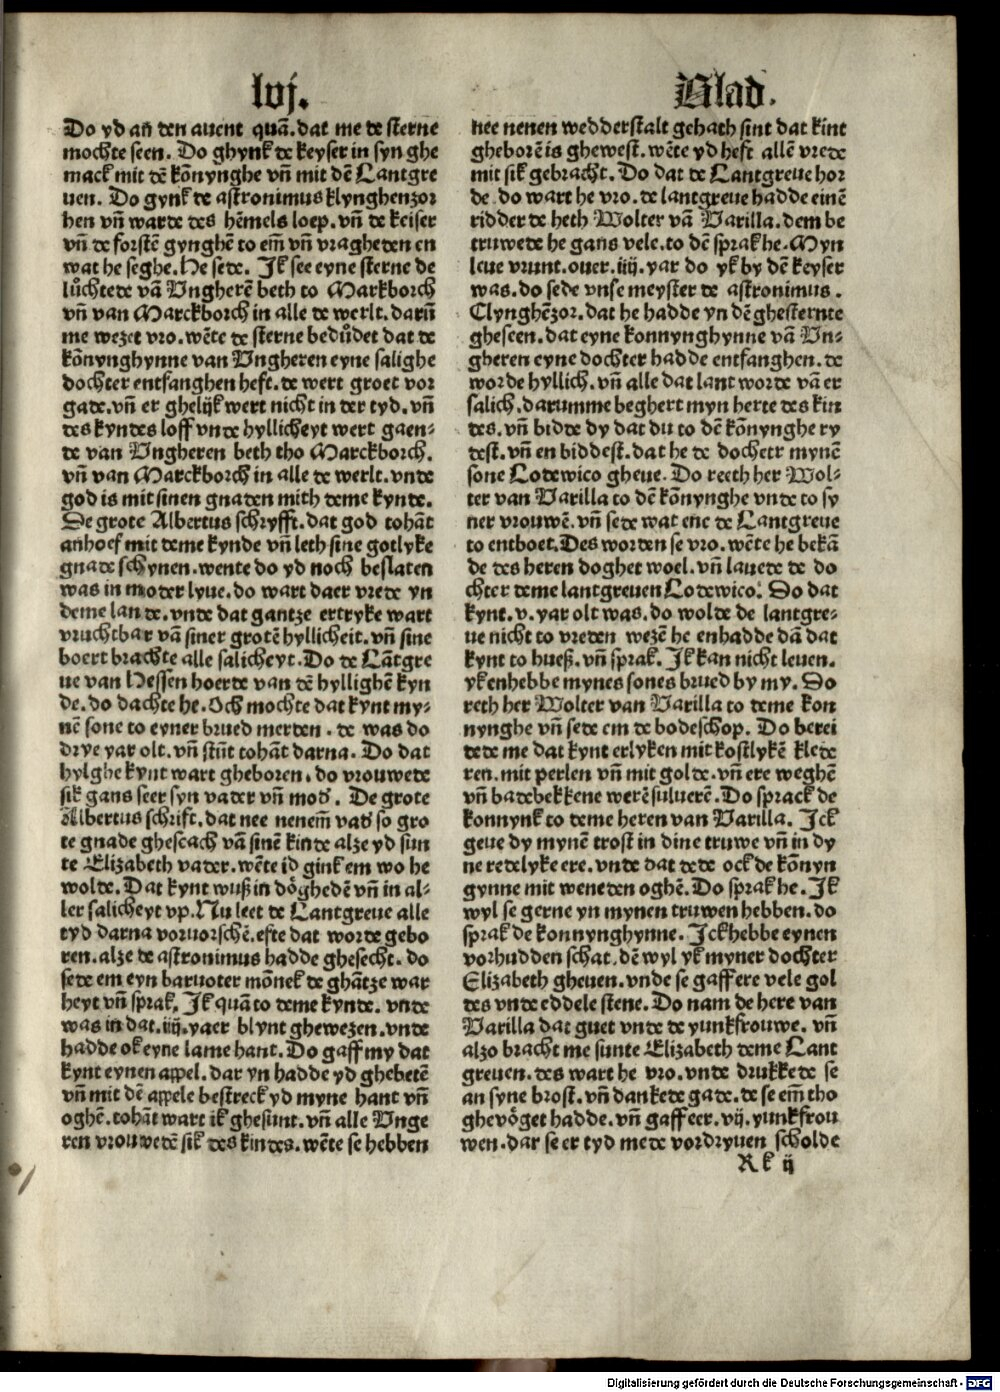 lvj.
Blad.
Do yd an̄ den auent quā. dat me de sterne
mochte seen. Do ghynk de keyser in syn ghe
mack mit dē kōnynghe vn̄ mit dē Lantgre
uen. Do gynk de astronimus klynghenzor
hen vn̄ warde des hēmels loep. vn̄ de keiser
vn̄ de forstē gynghē to em̄ vn̄ vragheden en
wat he seghe. He sede. Ik see eyne sterne de
lůchtede vā Vngherē beth to Marckborch
vn̄ van Marckborch in alle de werlt. darū
me wezet vro. wēte de sterne bedůdet dat de
kōnynghynne van Vngheren eyne salighe
dochter entfanghen heft. de wert groet vor
gade. vn̄ er ghelijk wert nicht in der tyd. vn̄
des kyndes loff vnde hyllicheyt wert gaen-
de van Vngheren beth tho Marckborch.
vn̄ van Marckborch in alle de werlt. vnde
god is mit sinen gnaden mith deme kynde.
De grote Albertus schryfft. dat god tohāt
anhoef mit deme kynde vn̄ leth sine gotlyke
gnade schynen. wente do yd noch beslaten
was in moder lyue. do wart daer vrede yn
deme lande. vnde dat gantze ertryke wart
vruchtbar vā siner grotē hyllicheit. vn̄ sine
boert brachte alle salicheyt. Do de Lātgre
ue van Hessen hoerde van dē hyllighē kyn
de. do dachte he. Och mochte dat kynt my-
nē sone to eyner brued werden. de was do
drye yar olt. vn̄ stūt tohāt darna. Do dat
hylghe kynt wart gheboren. do vrouwede
sik gans seer syn vader vn̄ mod᷒. De grote
Albertus schrift. dat nee nenem̄ vad᷒ so gro
te gnade ghescach vā sinē kinde alze yd sun
te Elizabeth vader. wēte id gink em wo he
wolde. Dat kynt wuß in dȫghedē vn̄ in al-
ler salicheyt vp. Nu leet de Lantgreue alle
tyd darna voruorschē. efte dat worde gebo
ren. alze de astronimus hadde ghesecht. do
sede em eyn baruoter mōnek de ghātze war
heyt vn̄ sprak. Ik quā to deme kynde. vnde
was in dat. iiij. yaer blynt ghewezen. vnde
hadde ok eyne lame hant. Do gaff my dat
kynt eynen appel. dar yn hadde yd ghebetē
vn̄ mit dē appele bestreck yd myne hant vn̄
oghē. tohāt wart ik ghesunt. vn̄ alle Vnge
ren vrouwedē sik des kindes. wēte se hebben
nee nenen wedderstalt gehath sint dat kint
gheborē is ghewest. wēte yd heft allē vrede
mit sik gebracht. Do dat de Lantgreue hor
de. do wart he vro. de lantgreue hadde einē
ridder de heth Wolter vā Varilla. dem be
truwede he gans vele. to dē sprak he. Myn
leue vrunt. ouer. iiij. yar do yk by dē keyser
was. do sede vnse meyster de astronimus.
Clynghēzor. dat he hadde yn dē ghesternte
gheseen. dat eyne konnynghynne vā Vn-
gheren eyne dochter hadde entfanghen. de
worde hyllich. vn̄ alle dat lant worde vā er
salich. darumme beghert myn herte des kin
des. vn̄ bidde dy dat du to dē kōnynghe ry
dest. vn̄ en biddest. dat he de dochetr mynē
sone Lodewico gheue. Do reeth her Wol-
ter van Varilla to dē kōnynghe vnde to sy
ner vrouwē. vn̄ sede wat ene de Lantgreue
to entboet. Des worden se vro. wēte he bekā
de des heren doghet woel. vn̄ lauede de do
chter deme lantgreuen Lodewico. Do dat
kynt. v. yar olt was. do wolde de lantgre-
ue nicht to vreden wezē he enhadde dā dat
kynt to hueß. vn̄ sprak. Ik kan nicht leuen.
yk enhebbe mynes sones brued by my. Do
reth her Wolter van Varilla to deme kon
nynghe vn̄ sede em de bodeschop. Do berei
dede me dat kynt erlyken mit kostlykē klede
ren. mit perlen vn̄ mit golde. vn̄ ere weghē
vn̄ badebekkene werē suluerē. Do sprack de
konnynk to deme heren van Varilla. Ick
geue dy mynē trost in dine truwe vn̄ in dy
ne redelyke ere. vnde dat dede ock de kōnyn
gynne mit weneden oghē. Do sprak he. Ik
wyl se gerne yn mynen truwen hebben. do
sprak de konnynghynne. Ick hebbe eynen
vorhudden schat. dē wyl yk myner dochter
Elizabeth gheuen. vnde se gaff ere vele gol
des vnde eddele stene. Do nam de here van
Varilla dat guet vnde de yunkfrouwe. vn̄
alzo bracht me sunte Elizabeth deme Lant
greuen. des wart he vro. vnde drukkede se
an syne brost. vn̄ dankede gade. de se em̄ tho
ghevöget hadde. vn̄ gaff eer. vij. yunkfrou
wen. dar se er tyd mede vordryuen scholde
Rk ij
Digitalisierung gefördert durch die Deutsche Forschungsgemeinschaft - DFG